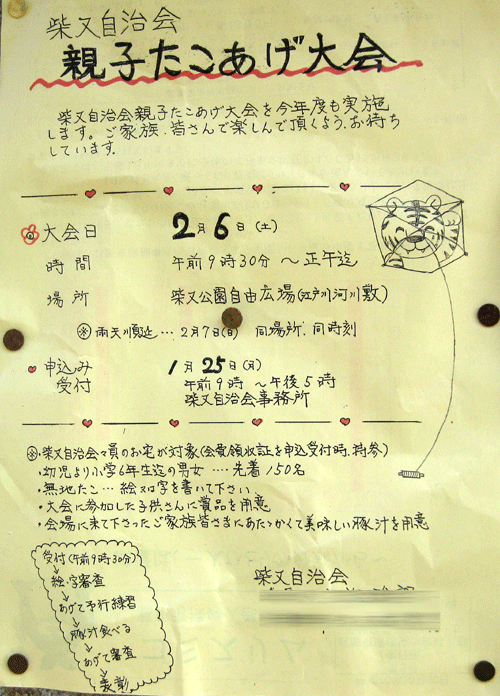 柴又自治会
親子たこあげ大会
柴又自治会親子たこあげ大会を今年度も実施
します。ご家族、皆さんで楽しんで頂くよう、お待ち
しています。
大会日 2月6日(土)
時間 午前9時30分 〜正午迄
場所 柴又公園自由広場(江戸川河川敷)
※雨天順延…2月7日(日) 同場所、同時刻
申込み 1月25日(月)
受付 午前9時 〜午後5時
柴又自治会事務所
※柴又自治会々員のお宅が対象(会費領収証を申込受付時、持参)
・幼児より小学6年生迄の男女 …. 先着150名
・無地たこ… 絵又は字を書いて下さい
・大会に参加した子供さんに賞品を用意
・会場に来て下さったご家族皆さまにあたゝかくて美味しい豚汁を用意
受付(午前9時30分)
↓
絵・字審査
↓
あげて予行練習
↓
豚汁食べる
↓
あげて審査
↓
表彰
柴又自治会